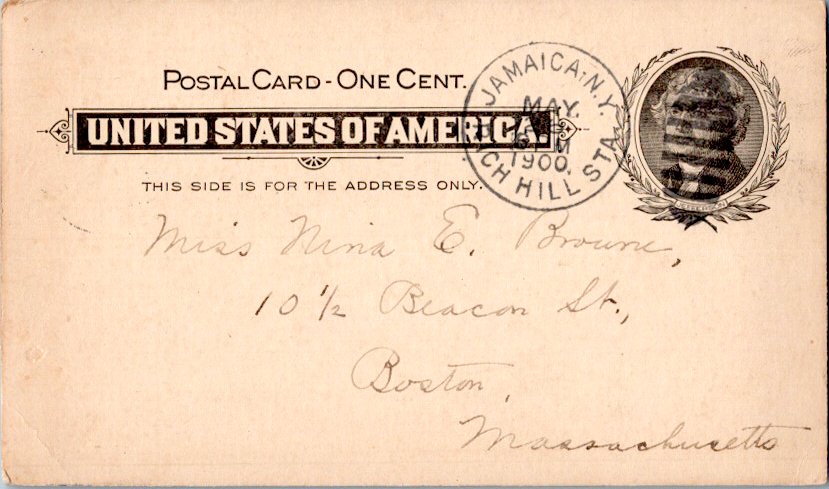 POSTAL CARD - ONE CENT.
UNITED STATES OF AMERICA.
THIS SIDE IS FOR THE ADDRESS ONLY.
JAMAICA, N.Y.
MAY
1900
HILL STA.
Miss Nina E. Browne,
10 1/2 Beacon St.,
Boston,
Massachusetts